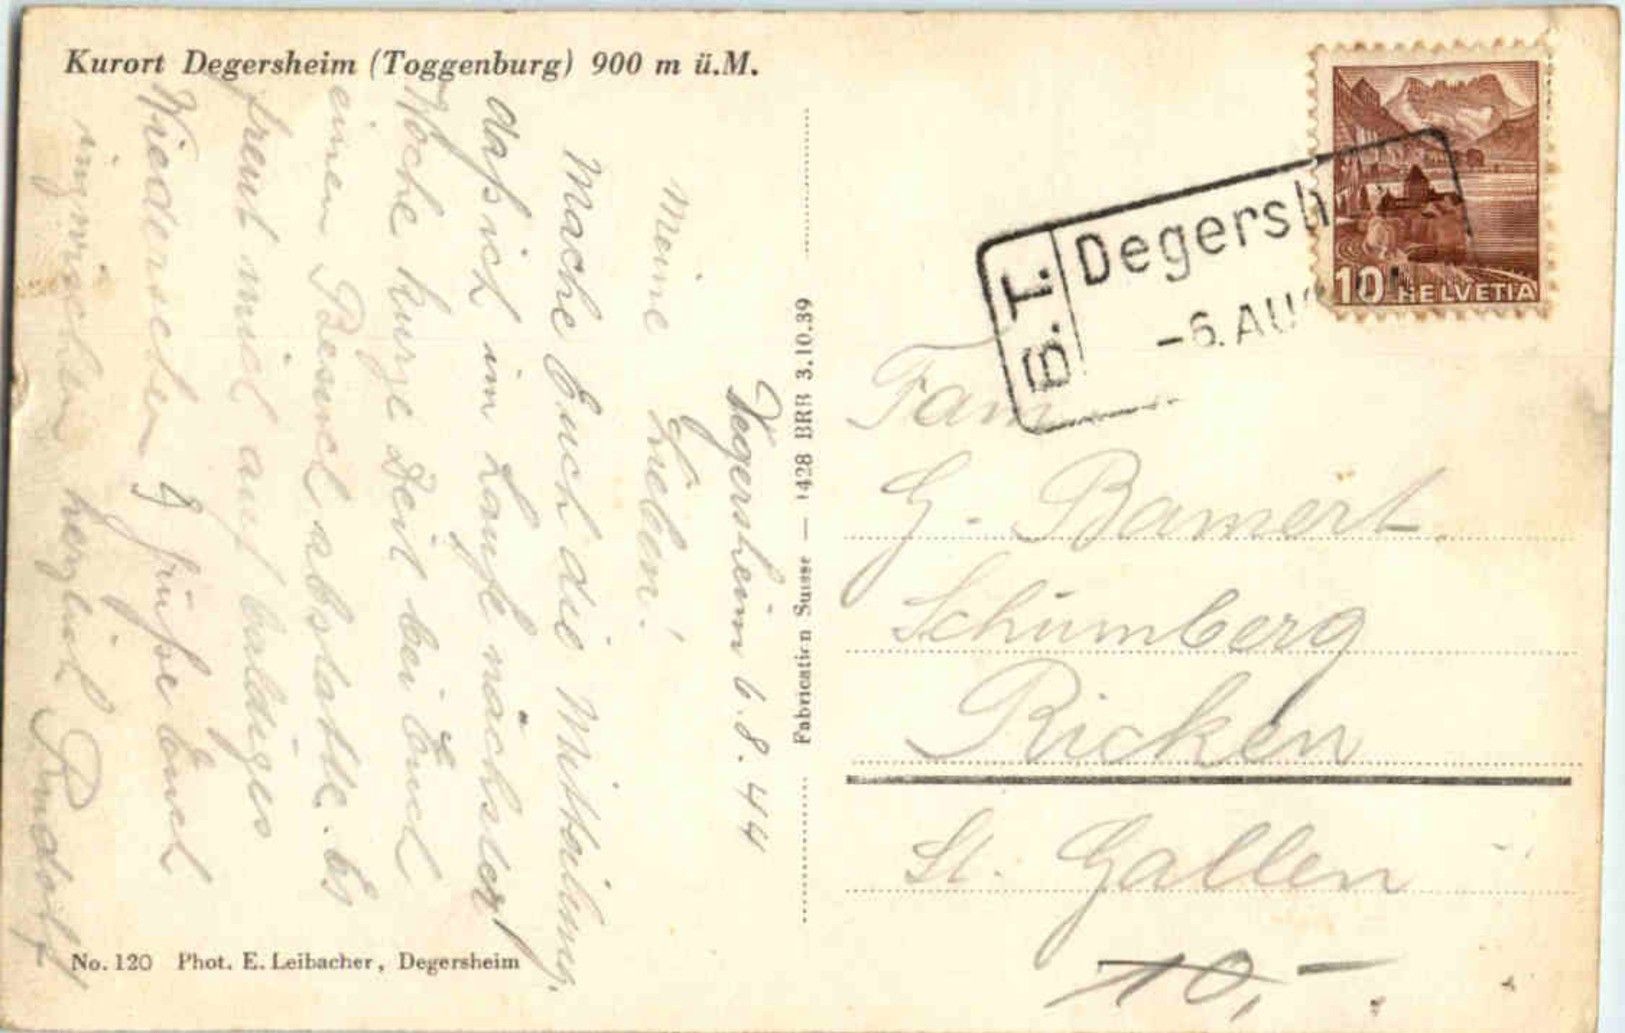 Kurort Degersheim (Toggenburg) 900 m ü.M.
Degersheim 6.8.44
Meine Lieben!
Mache Euch die Mitteilung,
daß ich im Laufe nächster
Woche kurze Zeit bei Euch
einen Besuch abstatte. Es
freut mich auf baldiges
Wiedersehen & grüße Euch
inzwischen herzlich Rudolf
No. 120 Phot. E. Leibacher, Degersheim
Fabrication Suisse — 1428 BRB 3.10.39
B.T. Degersh
-6. AUG
10 HELVETIA
Fam
G. Bamert
Schümberg
Ricken
St. Gallen
10,-